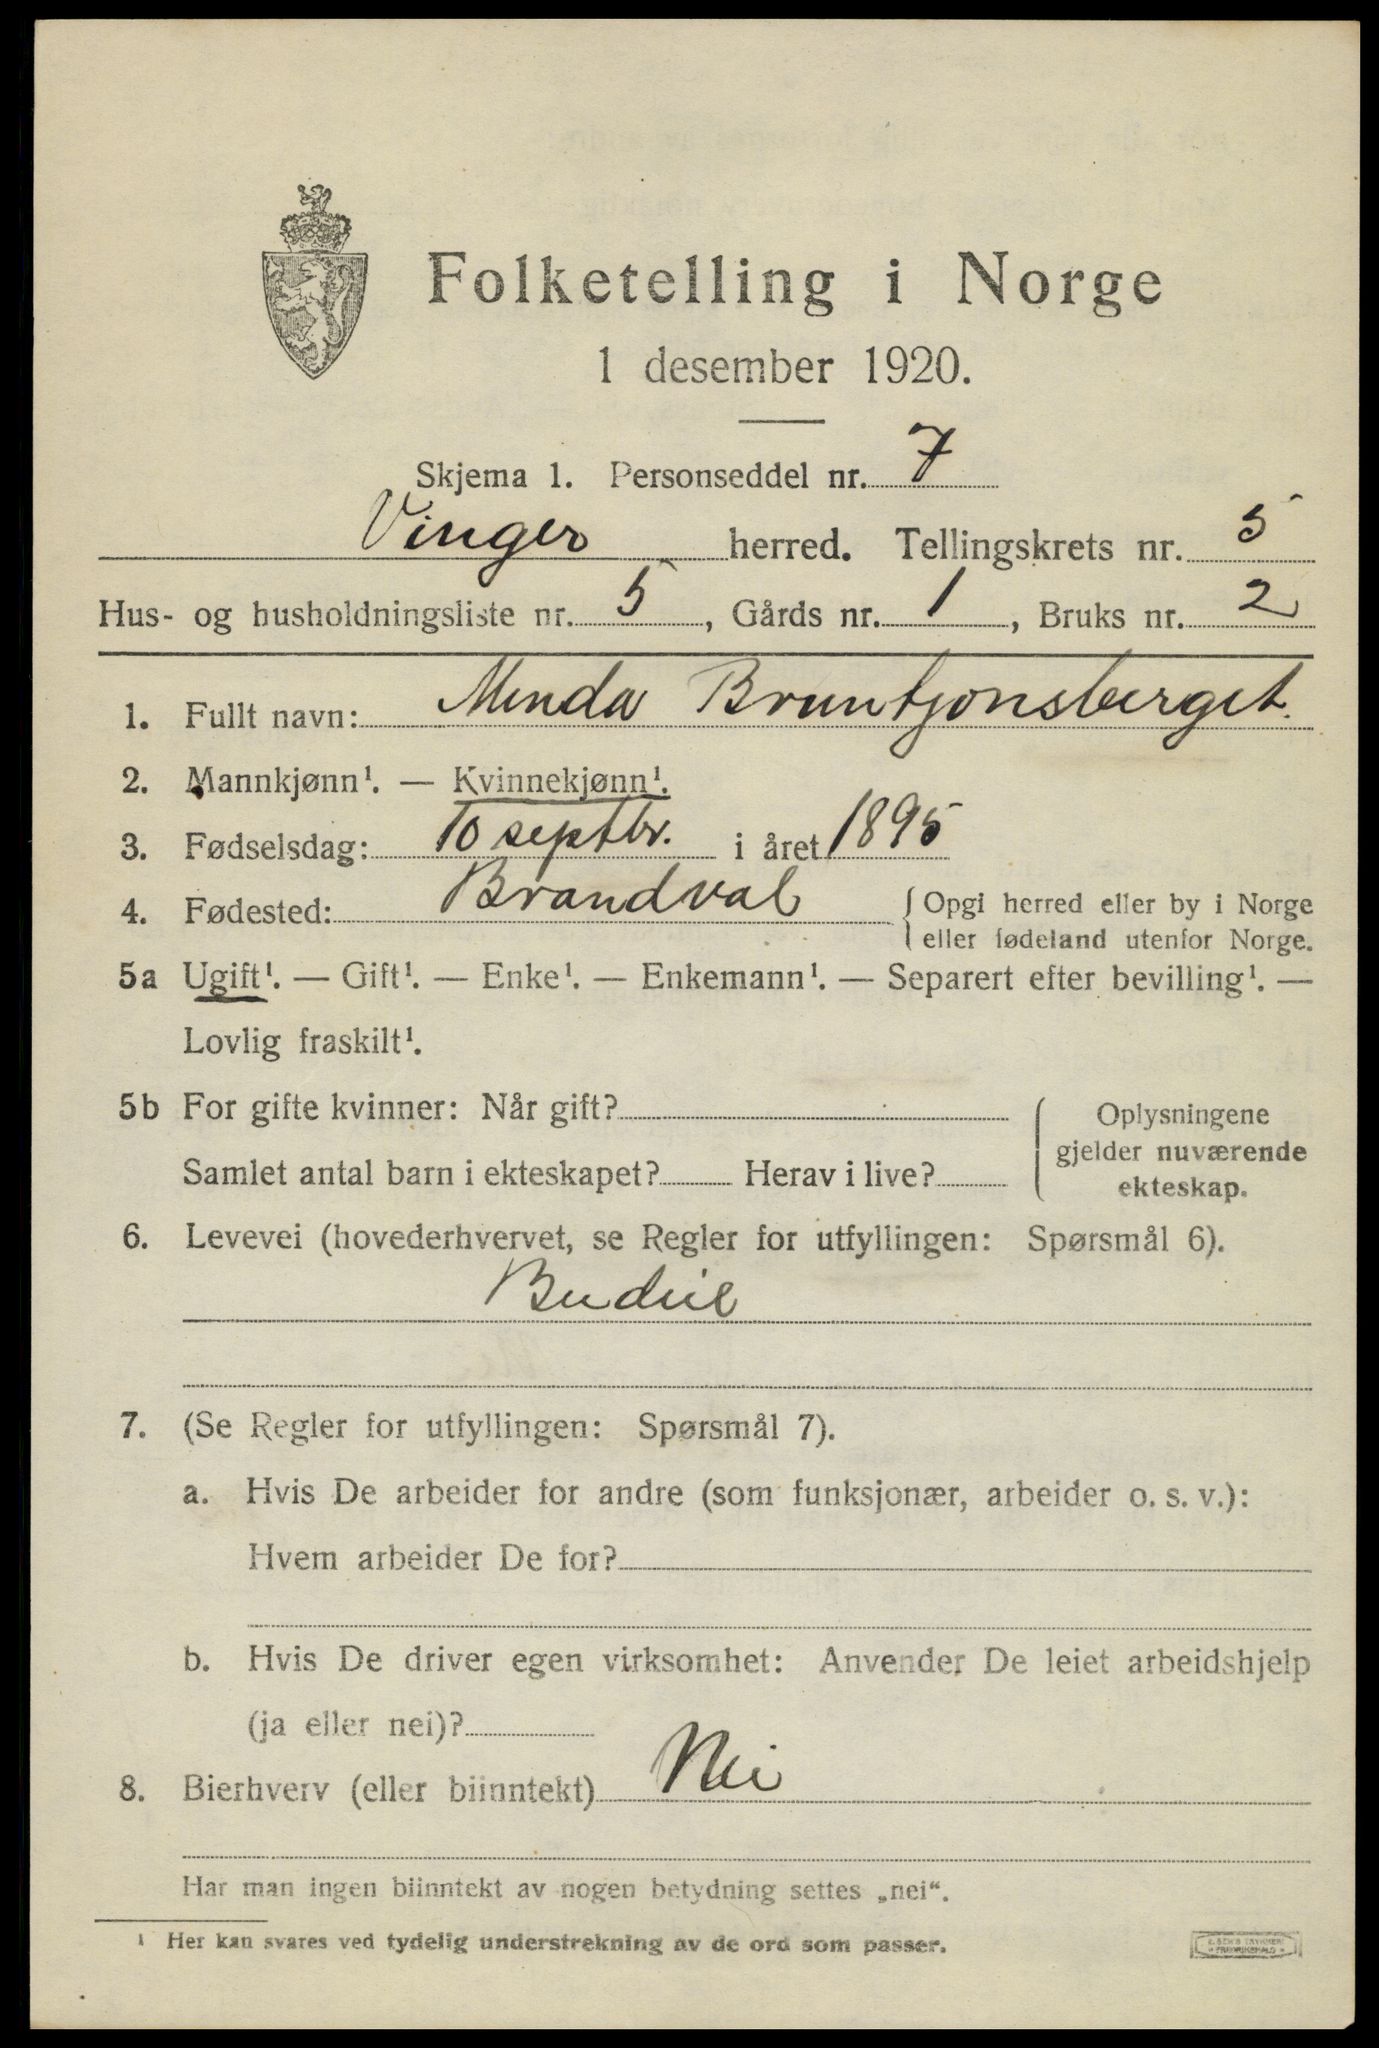 Folketelling i Norge
1 desember 1920.
Skjema 1. Personseddel nr. 7
Vinger herred. Tellingskrets nr. 5
Hus- og husholdningsliste nr. 5, Gårds nr. 1, Bruks nr. 2
1. Fullt navn: Minda Bruntjonsberget.
2. Mannkjønn¹. — Kvinnekjønn¹.
3. Fødselsdag: 10 septbr. i året 1895
4. Fødested: Brandval { Opgi herred eller by i Norge
eller fødeland utenfor Norge.
5a Ugift¹. — Gift¹. — Enke¹. — Enkemann¹. — Separert efter bevilling¹. —
Lovlig fraskilt¹.
5b For gifte kvinner: Når gift? { Oplysningene
gjelder nuværende
Samlet antal barn i ekteskapet? Herav i live? ekteskap.
6. Levevei (hovederhvervet, se Regler for utfyllingen: Spørsmål 6).
Budeie
7. (Se Regler for utfyllingen: Spørsmål 7).
a. Hvis De arbeider for andre (som funksjonær, arbeider o. s. v.):
Hvem arbeider De for?
b. Hvis De driver egen virksomhet: Anvender De leiet arbeidshjelp
(ja eller nei)?
8. Bierhverv (eller biinntekt) Nei
Har man ingen biinntekt av nogen betydning settes „nei“.
¹ Her kan svares ved tydelig understrekning av de ord som passer.